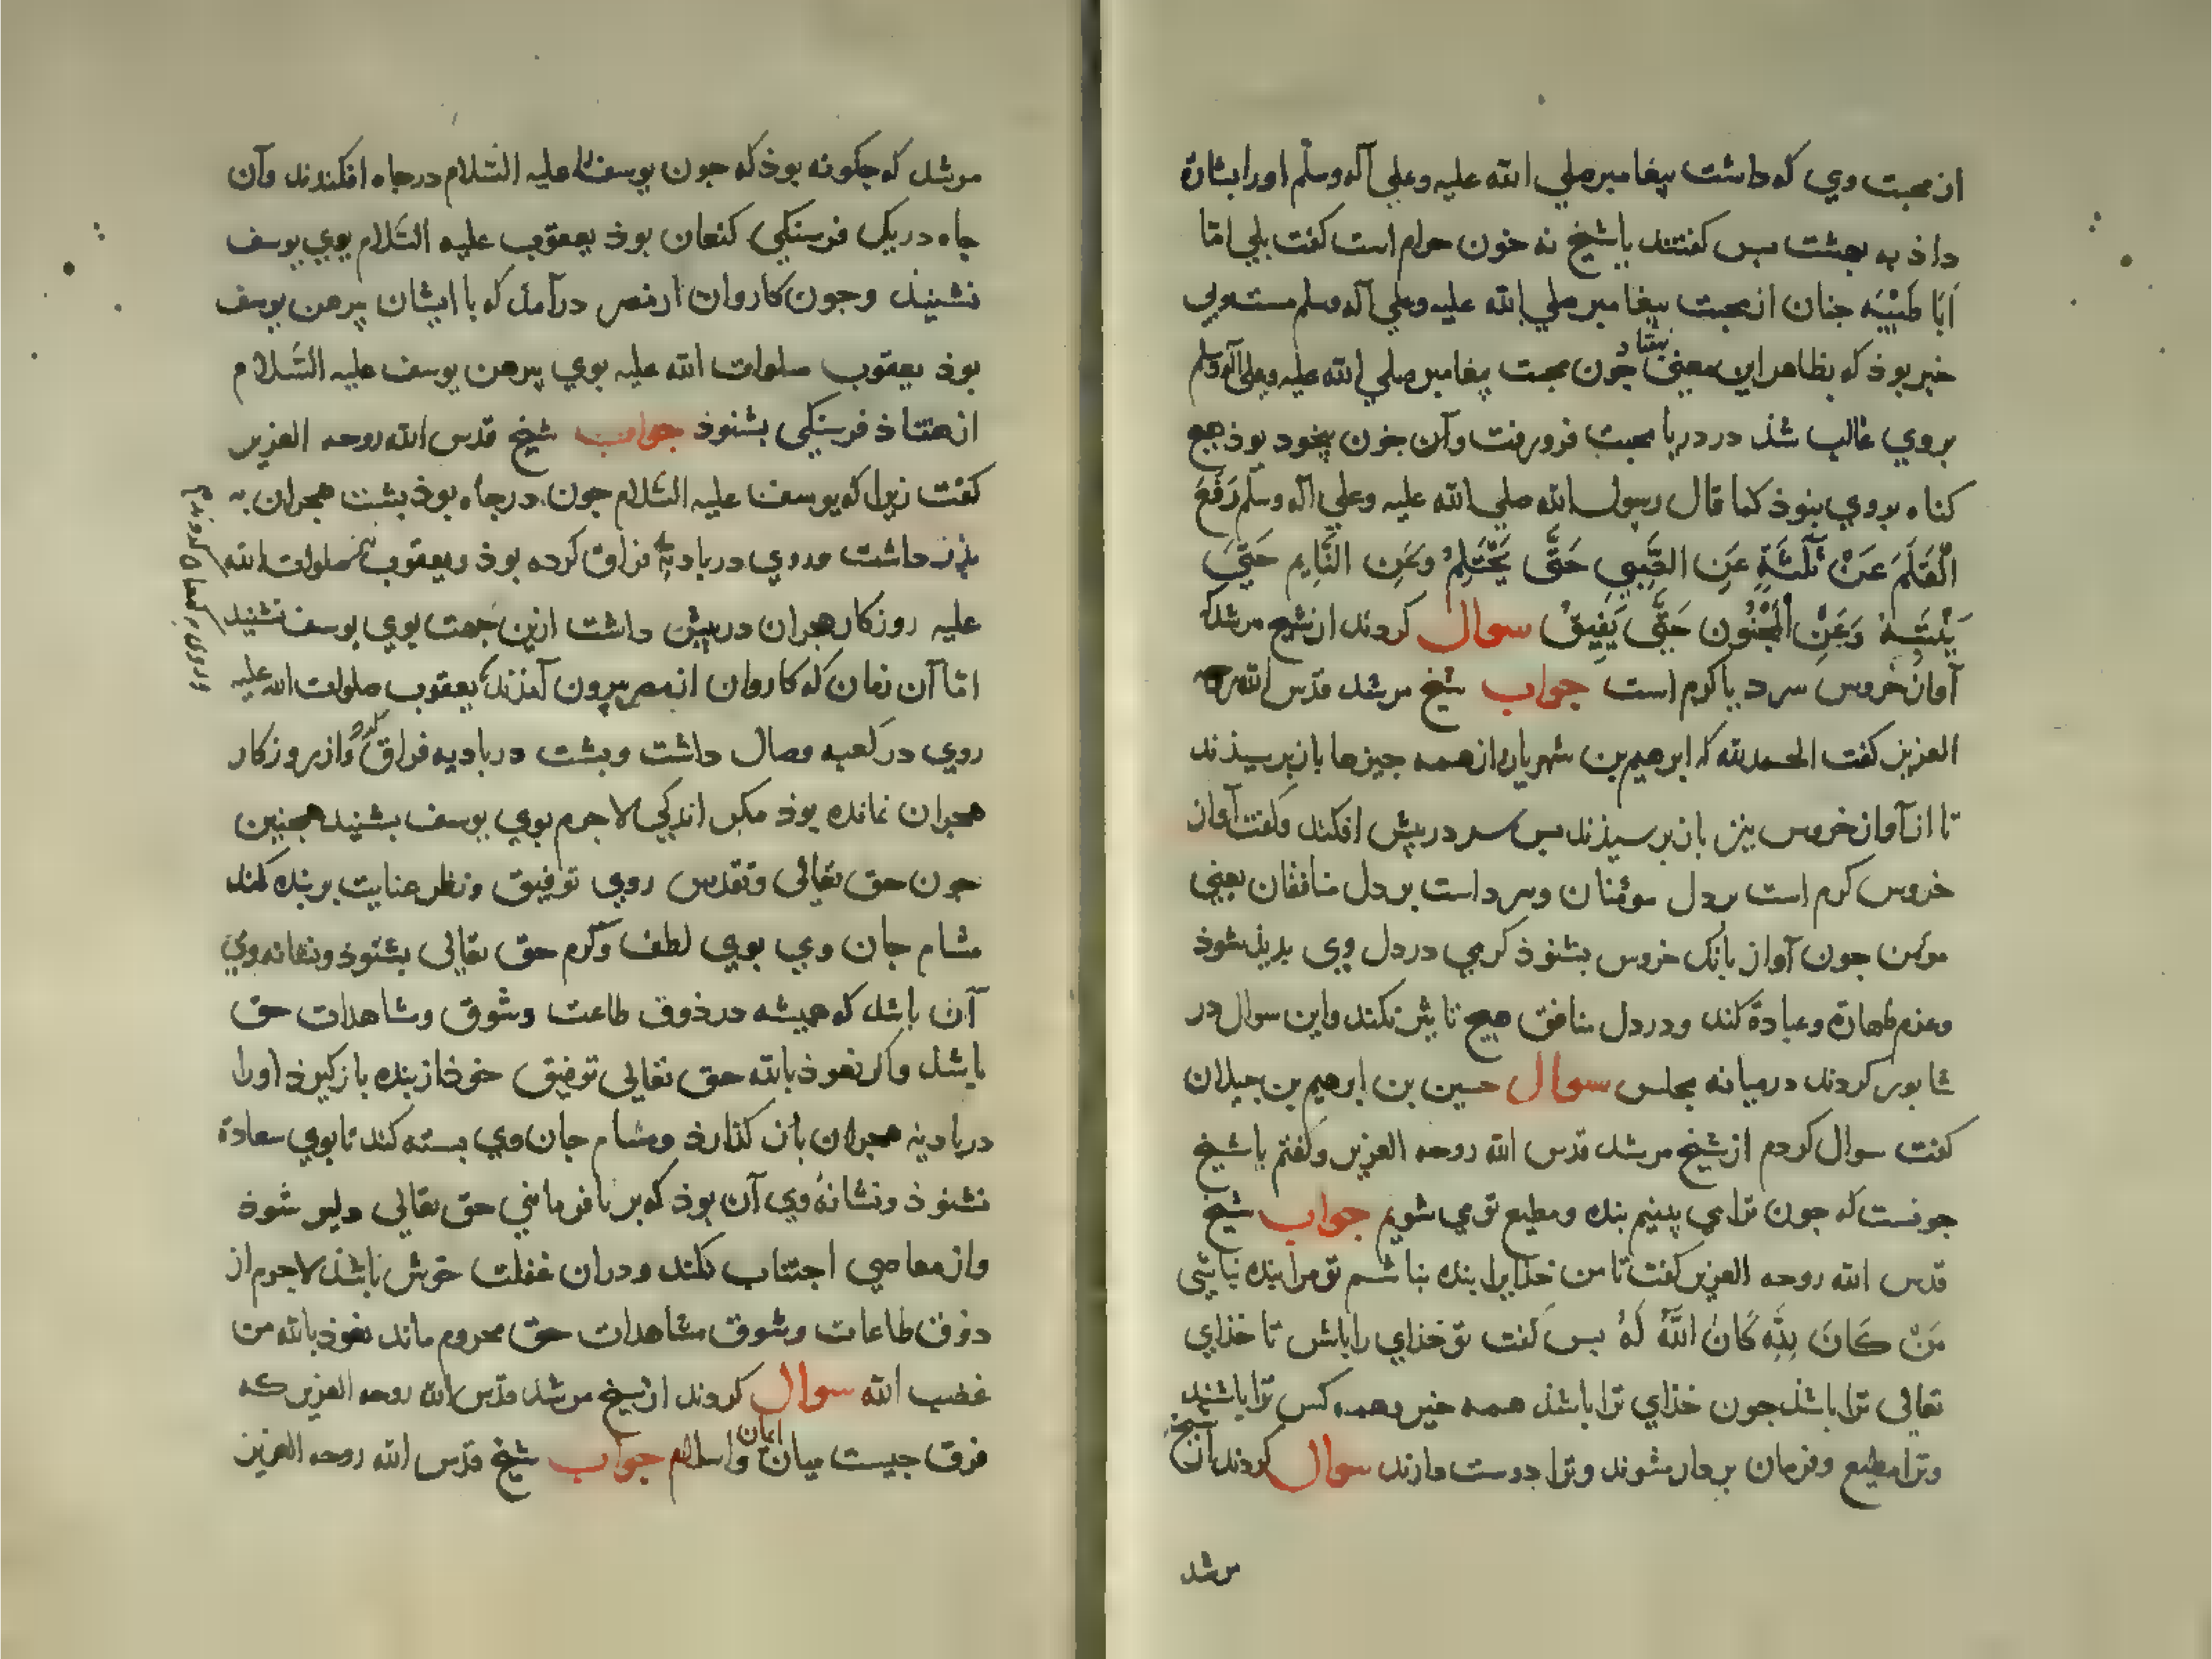 از محبت وي كه داشت پيغامبر صلي الله عليه وعلي آله وسلم اورا بشارة
داذ به بهشت بس كفتند يا شيخ نه خون حرام است كفت بلي امّا
اَبَا طَيْبَه جنان از محبت پيغامبر صلي الله عليه وعلي آله وسلم مست وبي
خبر بوذ كه بظاهر اين معني نيفتاد جون محبت پيغامبر صلي الله عليه وعلي آله وسلم
بروي غالب شذ در دريا محبت فرو رفت وآن جون بيخود بوذ هيج
كناه بروي نبوذ كما قال رسول الله صلي الله عليه وعلي آله وسلم رَفَعَ
الْقَلَمَ عَنْ ثَلٰثَةٍ عَنِ الصَّبِيِ حَتَّى يَحْتَلِمُ وَعَنِ النَّايِمِ حَتَّى
يَنْتَبِهُ وَعَنِ الْمَجْنُونِ حَتَّى يَفِيقُ سوال كردند از شيخ مرشد كه
آواز خروس سرد يا كرم است جواب شيخ مرشد قدس الله روحه
العزيز كفت الحمد لله كه ابرهيم بن شهريار از همه جيزها باز پرسيذند
تا از آواز خروس نيز باز پرسيذند بس سر در پيش افكند وكفت آواز
خروس كرم است بر دل مومنان وسرد است بر دل منافقان يعني
مومن جون آواز بانك خروس بشنوذ كرمي در دل وي پديذ شوذ
وعزم طهارة وعبادة كند ودر دل منافق هيج تاثير نكند واين سوال در
شابور كردند در ميانه مجلس سوال حسين بن ابرهيم بن جيلان
كفت سوال كردم از شيخ مرشد قدس الله روحه العزيز وكفتم يا شيخ
جونست كه جون ترا مي بينيم بنده ومطيع تو مي شويم جواب شيخ
قدس الله روحه العزيز كفت تا من خذايرا بنده نباشم تو مرا بنده نباشي
مَنْ كَانَ لِلّٰهِ كَانَ اللّٰهُ لَهُ بس كفت تو خذاي را باش تا خذاي
تعالي ترا باشذ جون خذاي ترا باشذ همه خير وهمه كس ترا باشند
وترا مطيع وفرمان بردار شوند وترا دوست دارند سوال كردند از شيخ
مرشد
مرشد كه جكونه بوذ كه جون يوسف را عليه السّلام در جاه افكندند وآن
جاه در يك فرسنكي كنعان بوذ يعقوب عليه السّلام بوي يوسف
نشنيد وجون كاروان از مصر درآمد كه با ايشان پيرهن يوسف
بوذ يعقوب صلوات الله عليه بوي پيرهن يوسف عليه السّلام
از هفتاذ فرسنكي بشنوذ جواب شيخ قدس الله روحه العزيز
كفت زيرا كه يوسف عليه السّلام جون در جاه بوذ بشت هجران به
پدر داشت وروي در باديه فراق كرده بوذ ويعقوب صلوات الله
عليه روزكار هجران در پيش داشت ازين جهت بوي يوسف نشنيد
امّا آن زمان كه كاروان از مصر بيرون آمذند يعقوب صلوات الله عليه
روي در كعبه وصال داشت وبشت در باديه فراق كرد واز روزكار
هجران نمانده بوذ مكر اندكي لاجرم بوي يوسف بشنيد همجنين
جون حق تعالى وتقدس روي توفيق ونظر عنايت بر بنده كند
مشام جان وي بوي لطف وكرم حق تعالى بشنوذ ونشانه وي
آن باشد كه هميشه در ذوق طاعت وشوق ومشاهدات حق
باشد واكر نعوذ بالله حق تعالى توفيق خوذ از بنده باز كيرذ اورا
در باديه هجران باز كذارذ ومشام جان وي بسته كند تا بوي سعادة
نشنوذ ونشانهٔ وي آن بوذ كه بر نافرماني حق تعالى دلير شوذ
واز معاصي اجتناب نكند ودران غفلت خوش باشذ لاجرم از
ذوق طاعات وشوق مشاهدات حق محروم ماند نعوذ بالله من
غضب الله سوال كردند از شيخ مرشد قدس الله روحه العزيز كه
فرق جيست ميان ايمان واسلام جواب شيخ قدس الله روحه العزيز